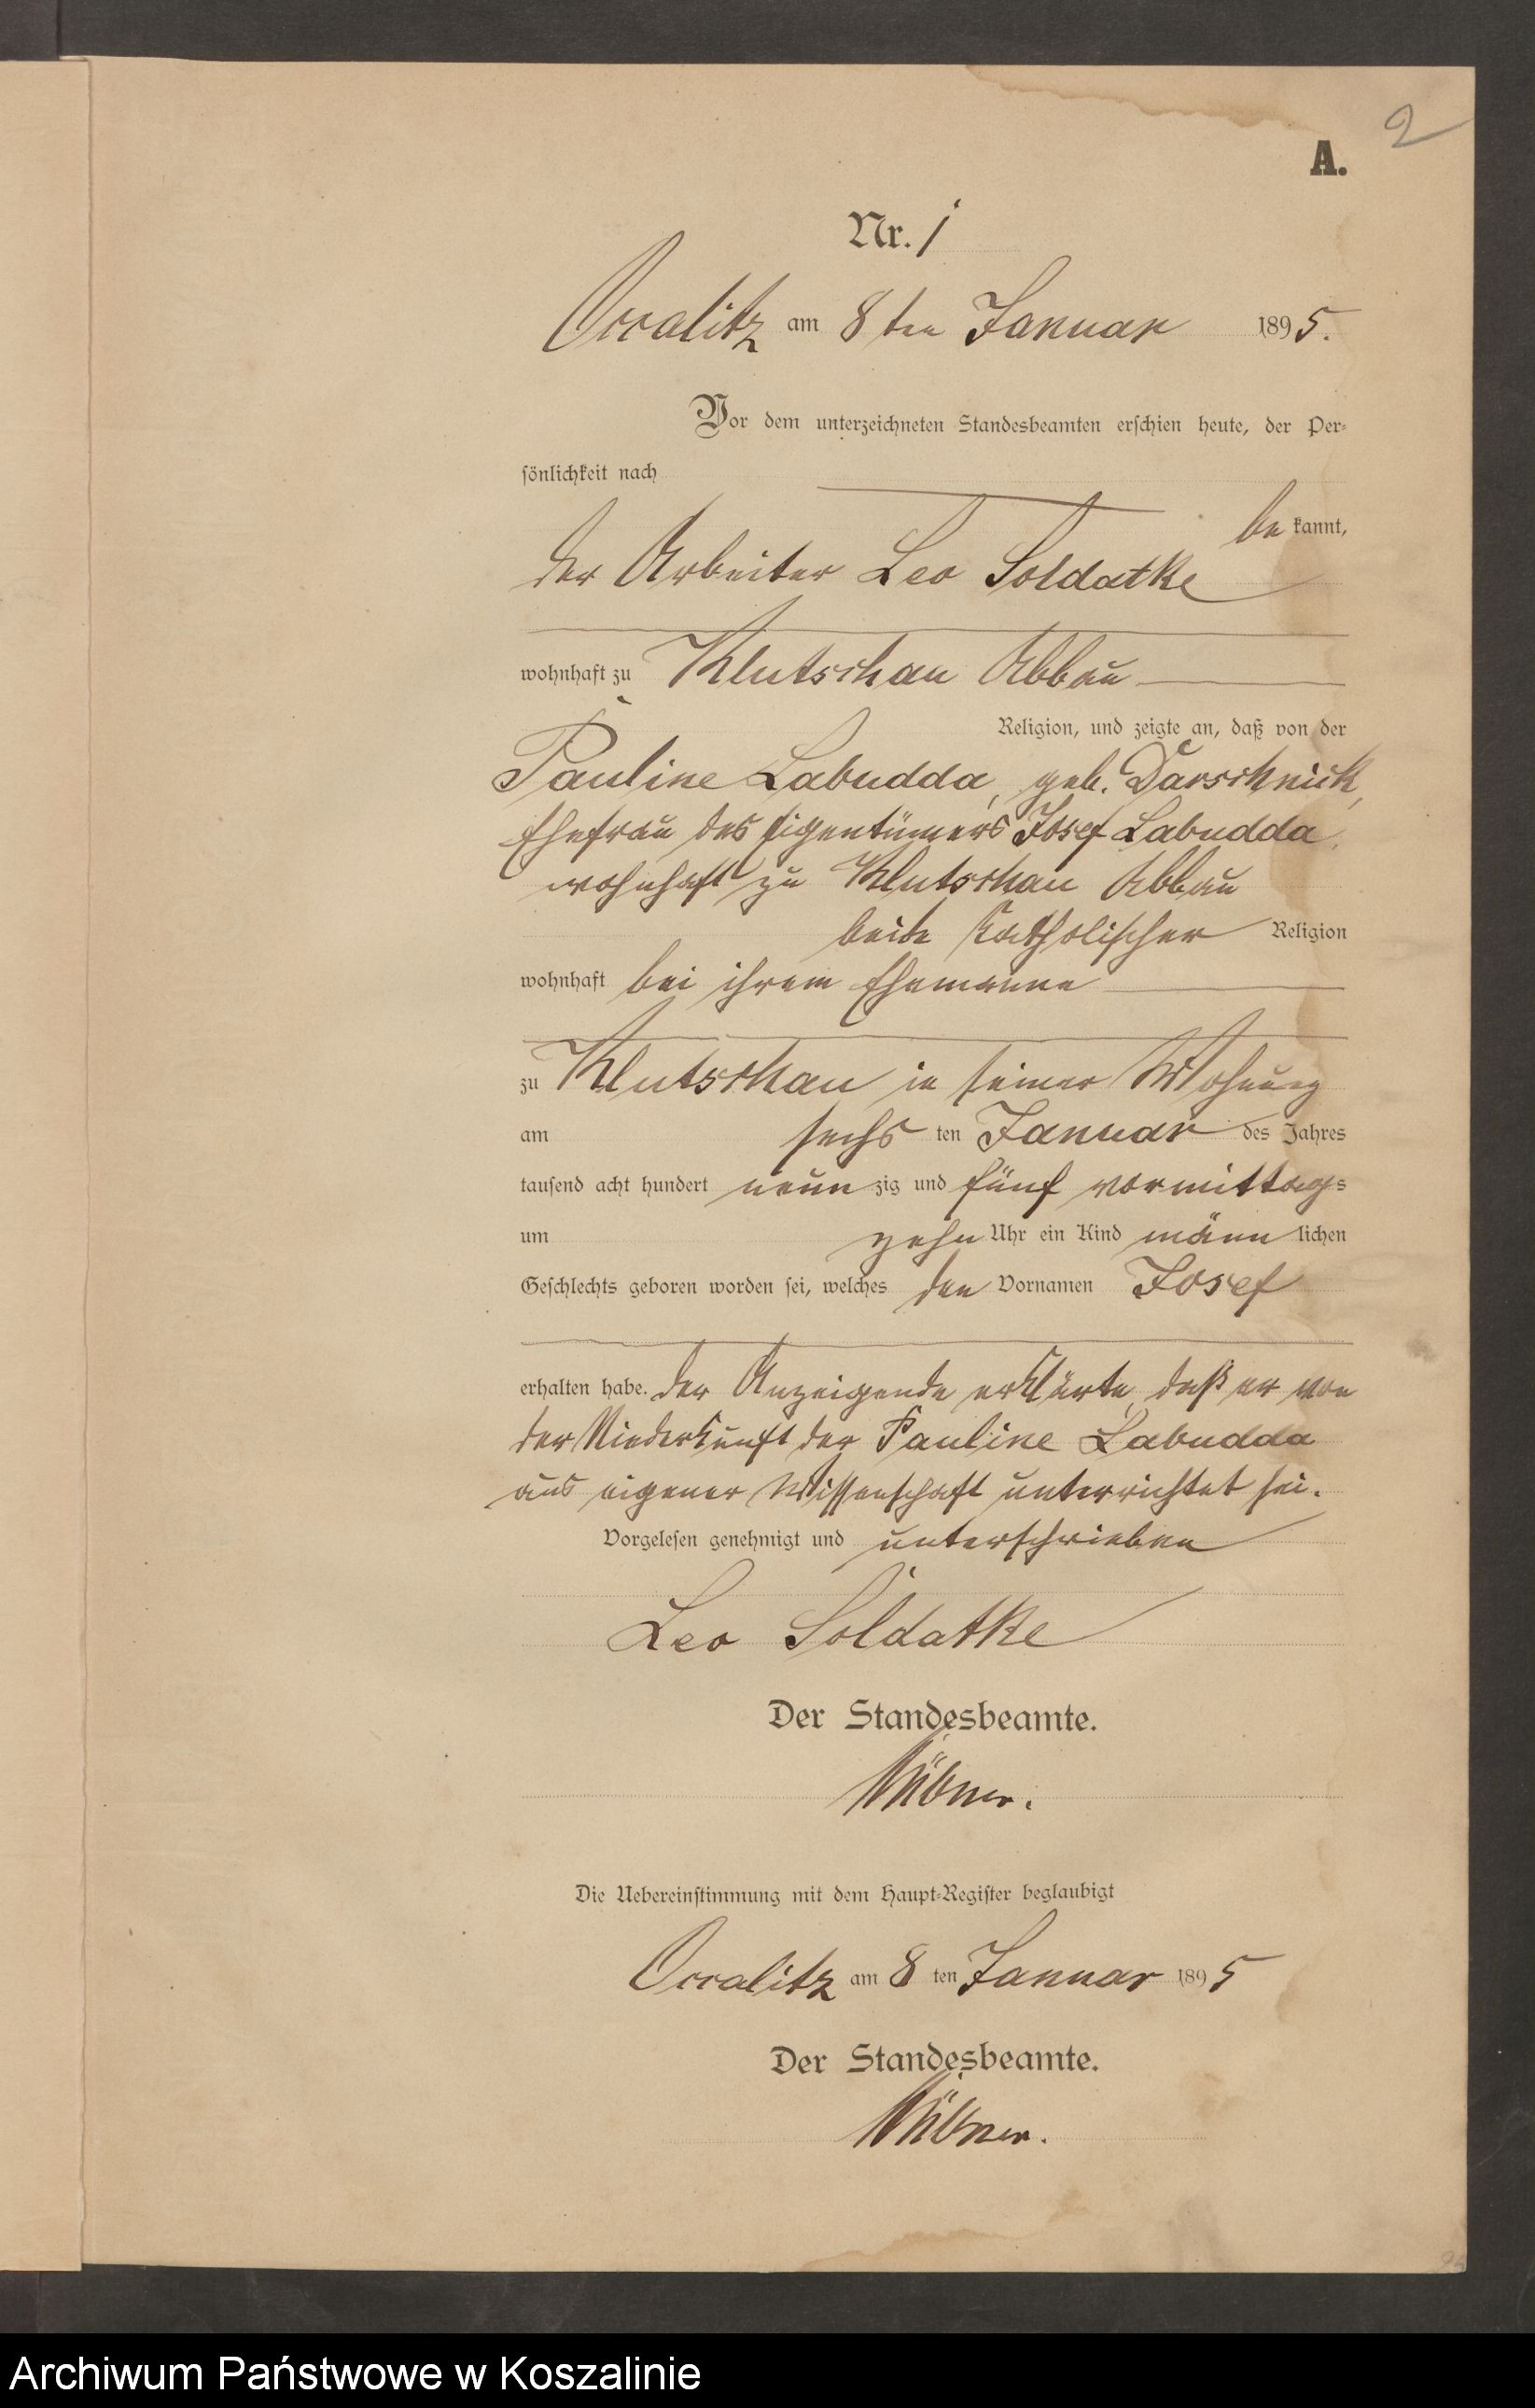 2
A.
Nr. 1
Occalitz am 8ten Januar 1895.
Vor dem unterzeichneten Standesbeamten erschien heute, der Per-
sönlichkeit nach
be kannt,
der Arbeiter Leo Soldatke
wohnhaft zu Klutschau Abbau
Religion, und zeigte an, daß von der
Pauline Labudda, geb. Darschnick,
Ehefrau des Eigentümers Josef Labudda,
wohnhaft zu Klutschau Abbau
beide katholischer Religion
wohnhaft bei ihrem Ehemanne
zu Klutschau in seiner Wohnung
am sechs ten Januar des Jahres
tausend acht hundert neun zig und fünf vormittags
um zehn Uhr ein Kind männ lichen
Geschlechts geboren worden sei, welches den Vornamen Josef
erhalten habe. Der Anzeigende erklärte, daß er von
der Niederkunft der Pauline Labudda
aus eigener Wissenschaft unterrichtet sei.
Vorgelesen genehmigt und unterschrieben
Leo Soldatke
Der Standesbeamte.
Die Uebereinstimmung mit dem Haupt-Register beglaubigt
Occalitz am 8 ten Januar 1895
Der Standesbeamte.
Archiwum Państwowe w Koszalinie